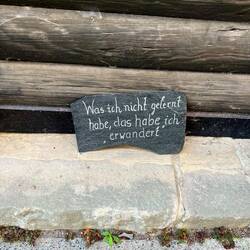 Was ich nicht gelernt
habe, das habe ich
"erwandert"